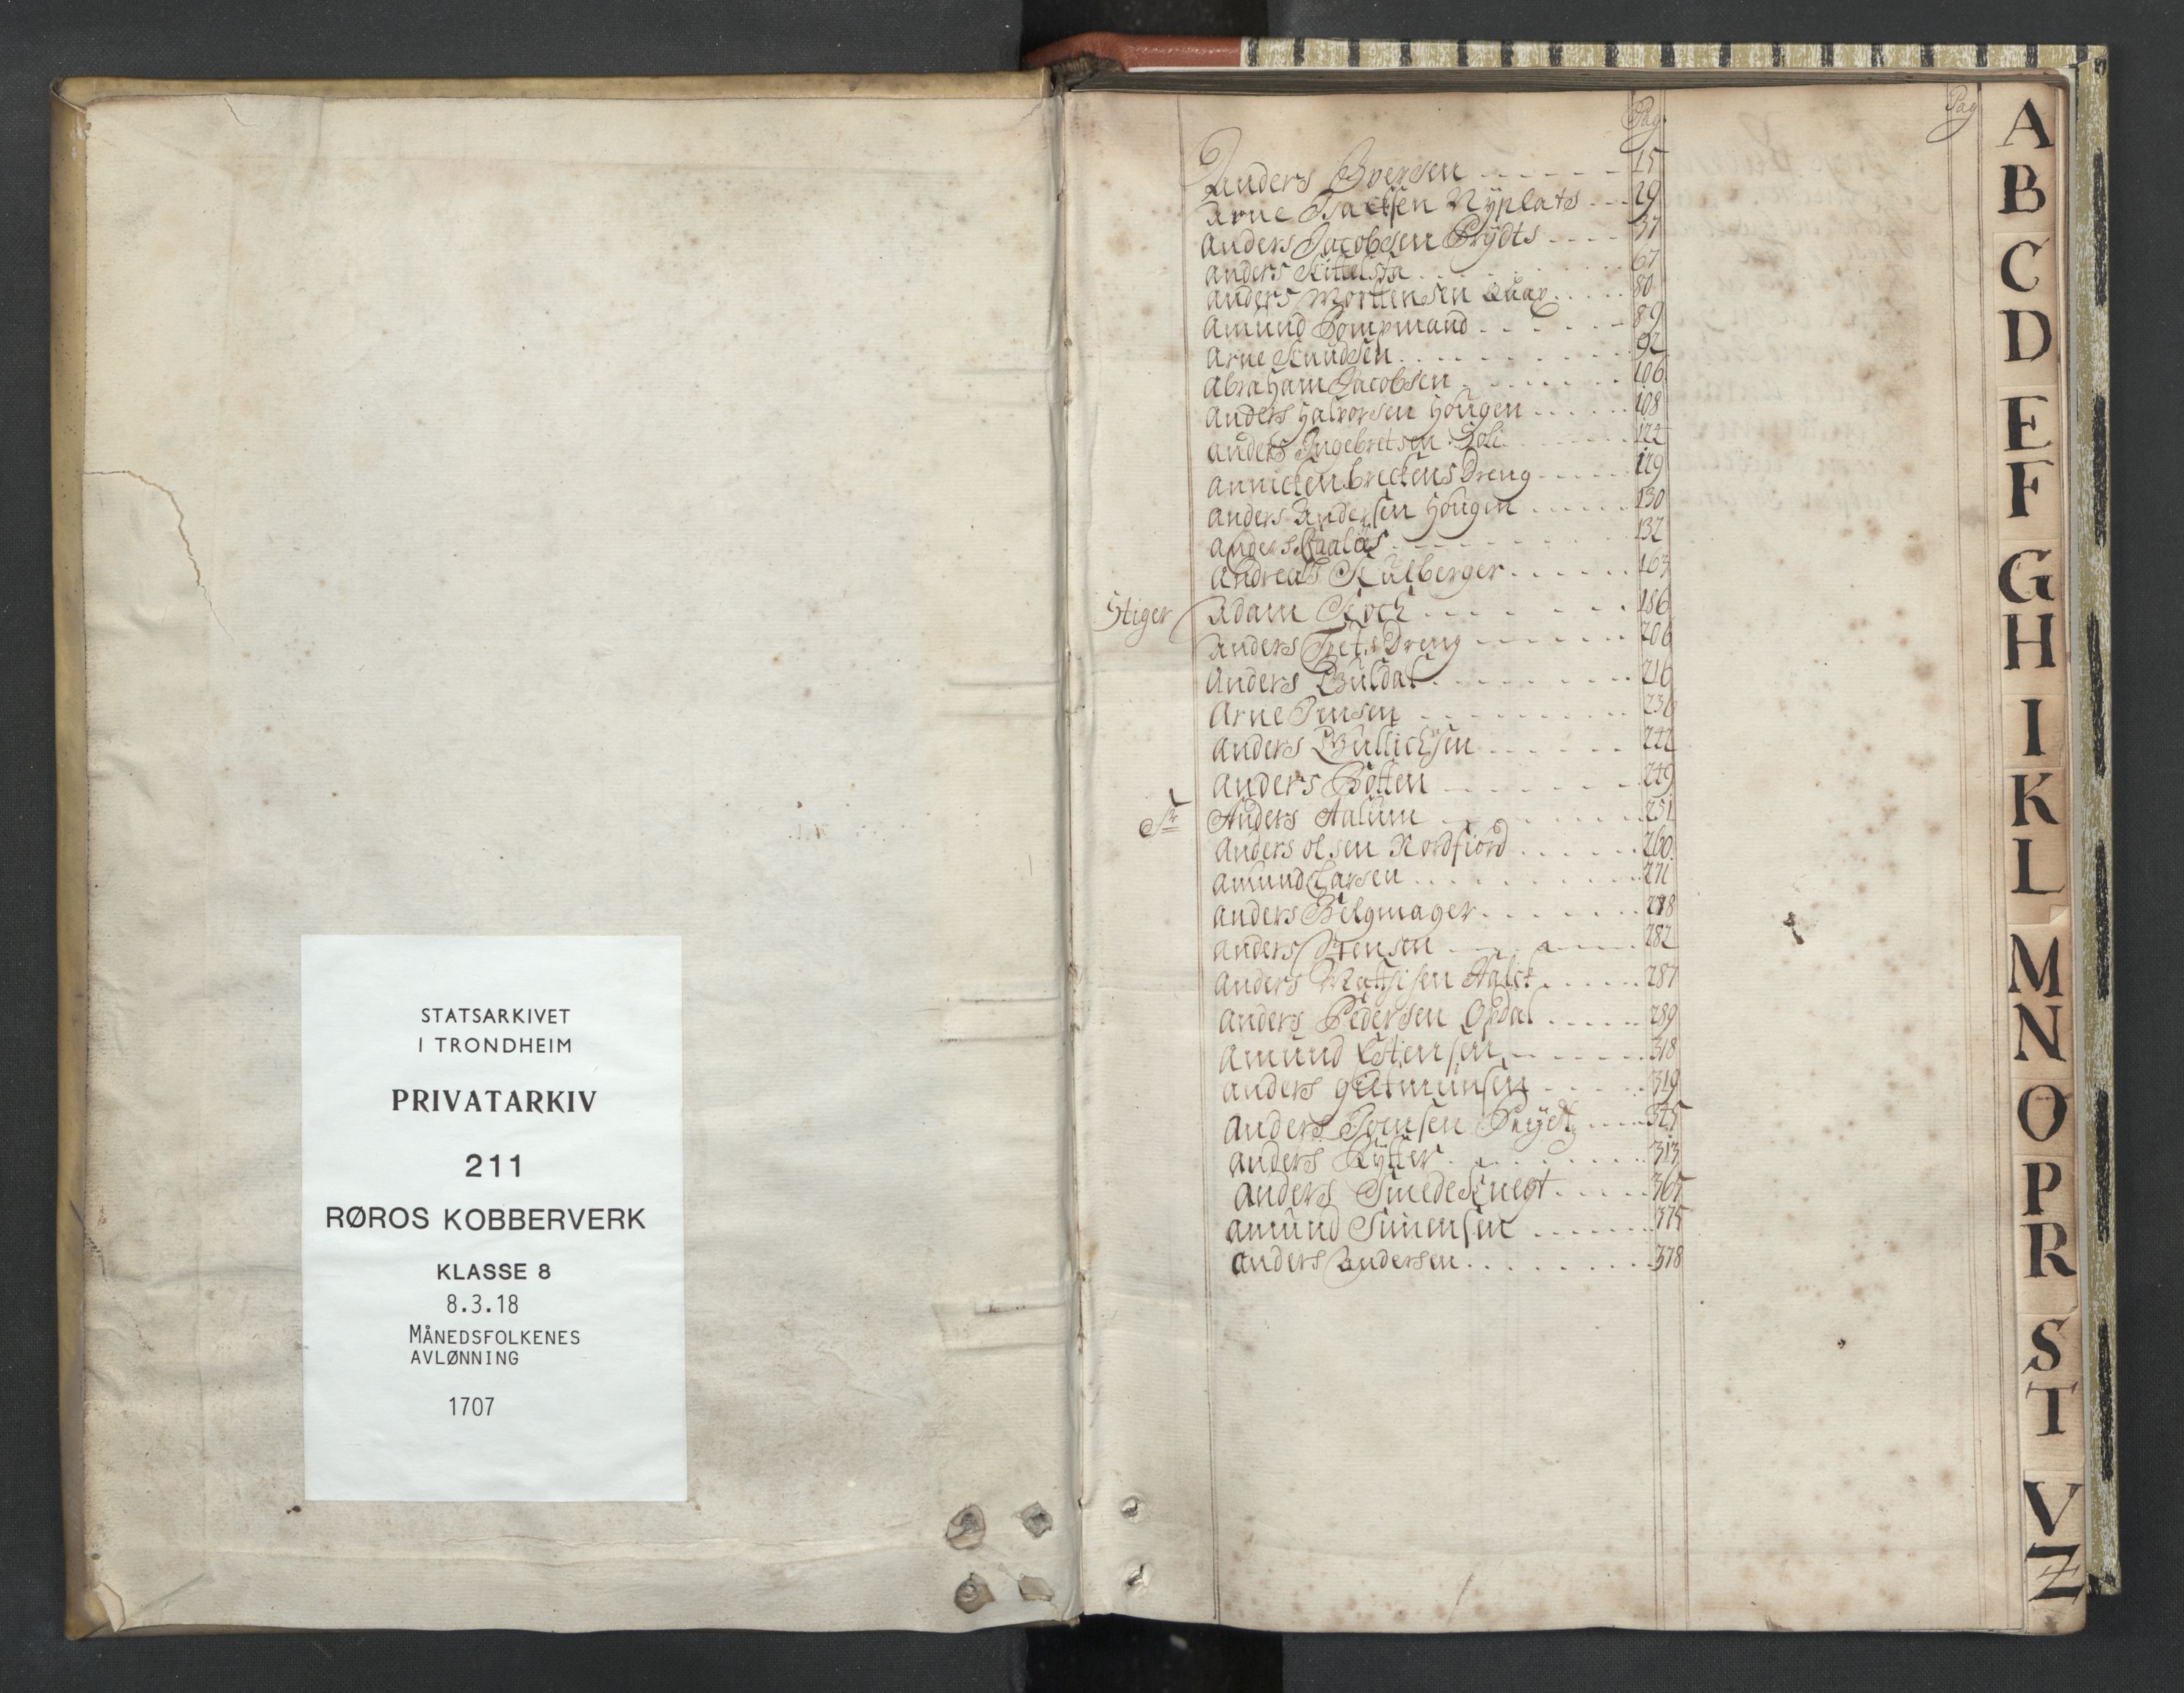 STATSARKIVET
I TRONDHEIM
PRIVATARKIV
211
RØROS KOBBERVERK
KLASSE 8
8.3.18
MÅNEDSFOLKENES
AVLØNNING
1707
Pag.
Pag
Anders Iversen 15
Arne Isacksen Nÿplats 29
Anders Jacobsen Prÿdts 37
Anders Kittelsta 67
Anders Mortensen Quar 80
Amund Pompmand 89
Arne Knudsen 92
Abraham Jacobsen 106
Anders Halvorsen Hougen 108
Anders Ingebretsen Soli 122
Annicken breckens Dreng 129
Anders Andersen Hougen 130
Anders Aalås 132
Andreas Kulberger 163
Stiger Adam Koch 186
Anders Dreng 206
Anders Guldal 216
Arne Jensen 236
Anders Gullichsen 242
Anders Botten 249
Sr Anders Aalum 251
Anders olsen Nordfiord 260
Amund Larsen 271
Anders Belgmager 278
Anders 282
Anders Mattisen Aalet 287
Anders Pedersen Opdal 289
Amund Estensen 318
Anders Gutmunsen 319
Anders Jonsen Prÿdtz 345
Anders Rÿtter 313
Anders Smedeknegt 365
Amund Simensen 375
Anders Andersen 378
A
B
C
D
E
F
G
H
I
K
L
M
N
O
P
R
S
T
V
Z